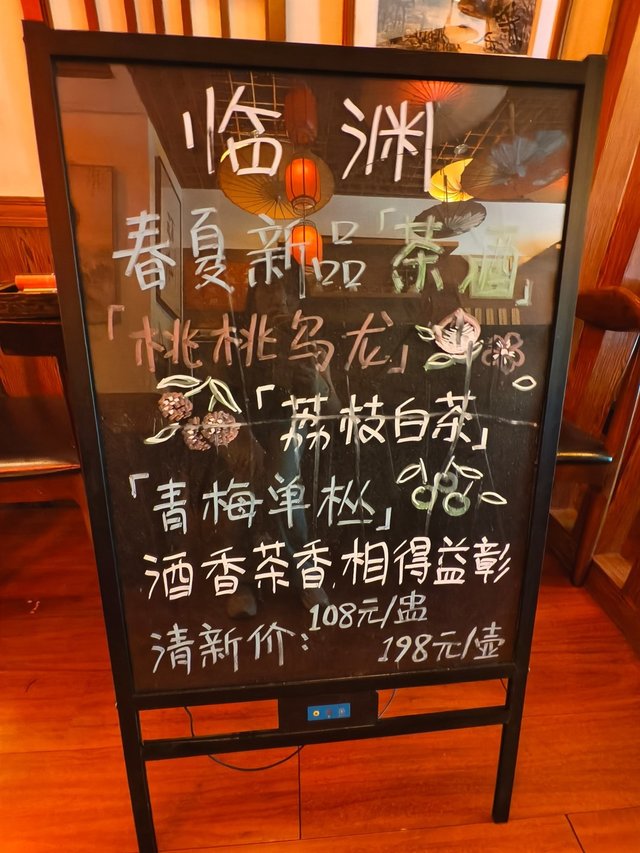 临渊
春夏新品「茶酒」
「桃桃乌龙」
「荔枝白茶」
「青梅单枞」
酒香茶香,相得益彰
清新价:108元/盅
198元/壶